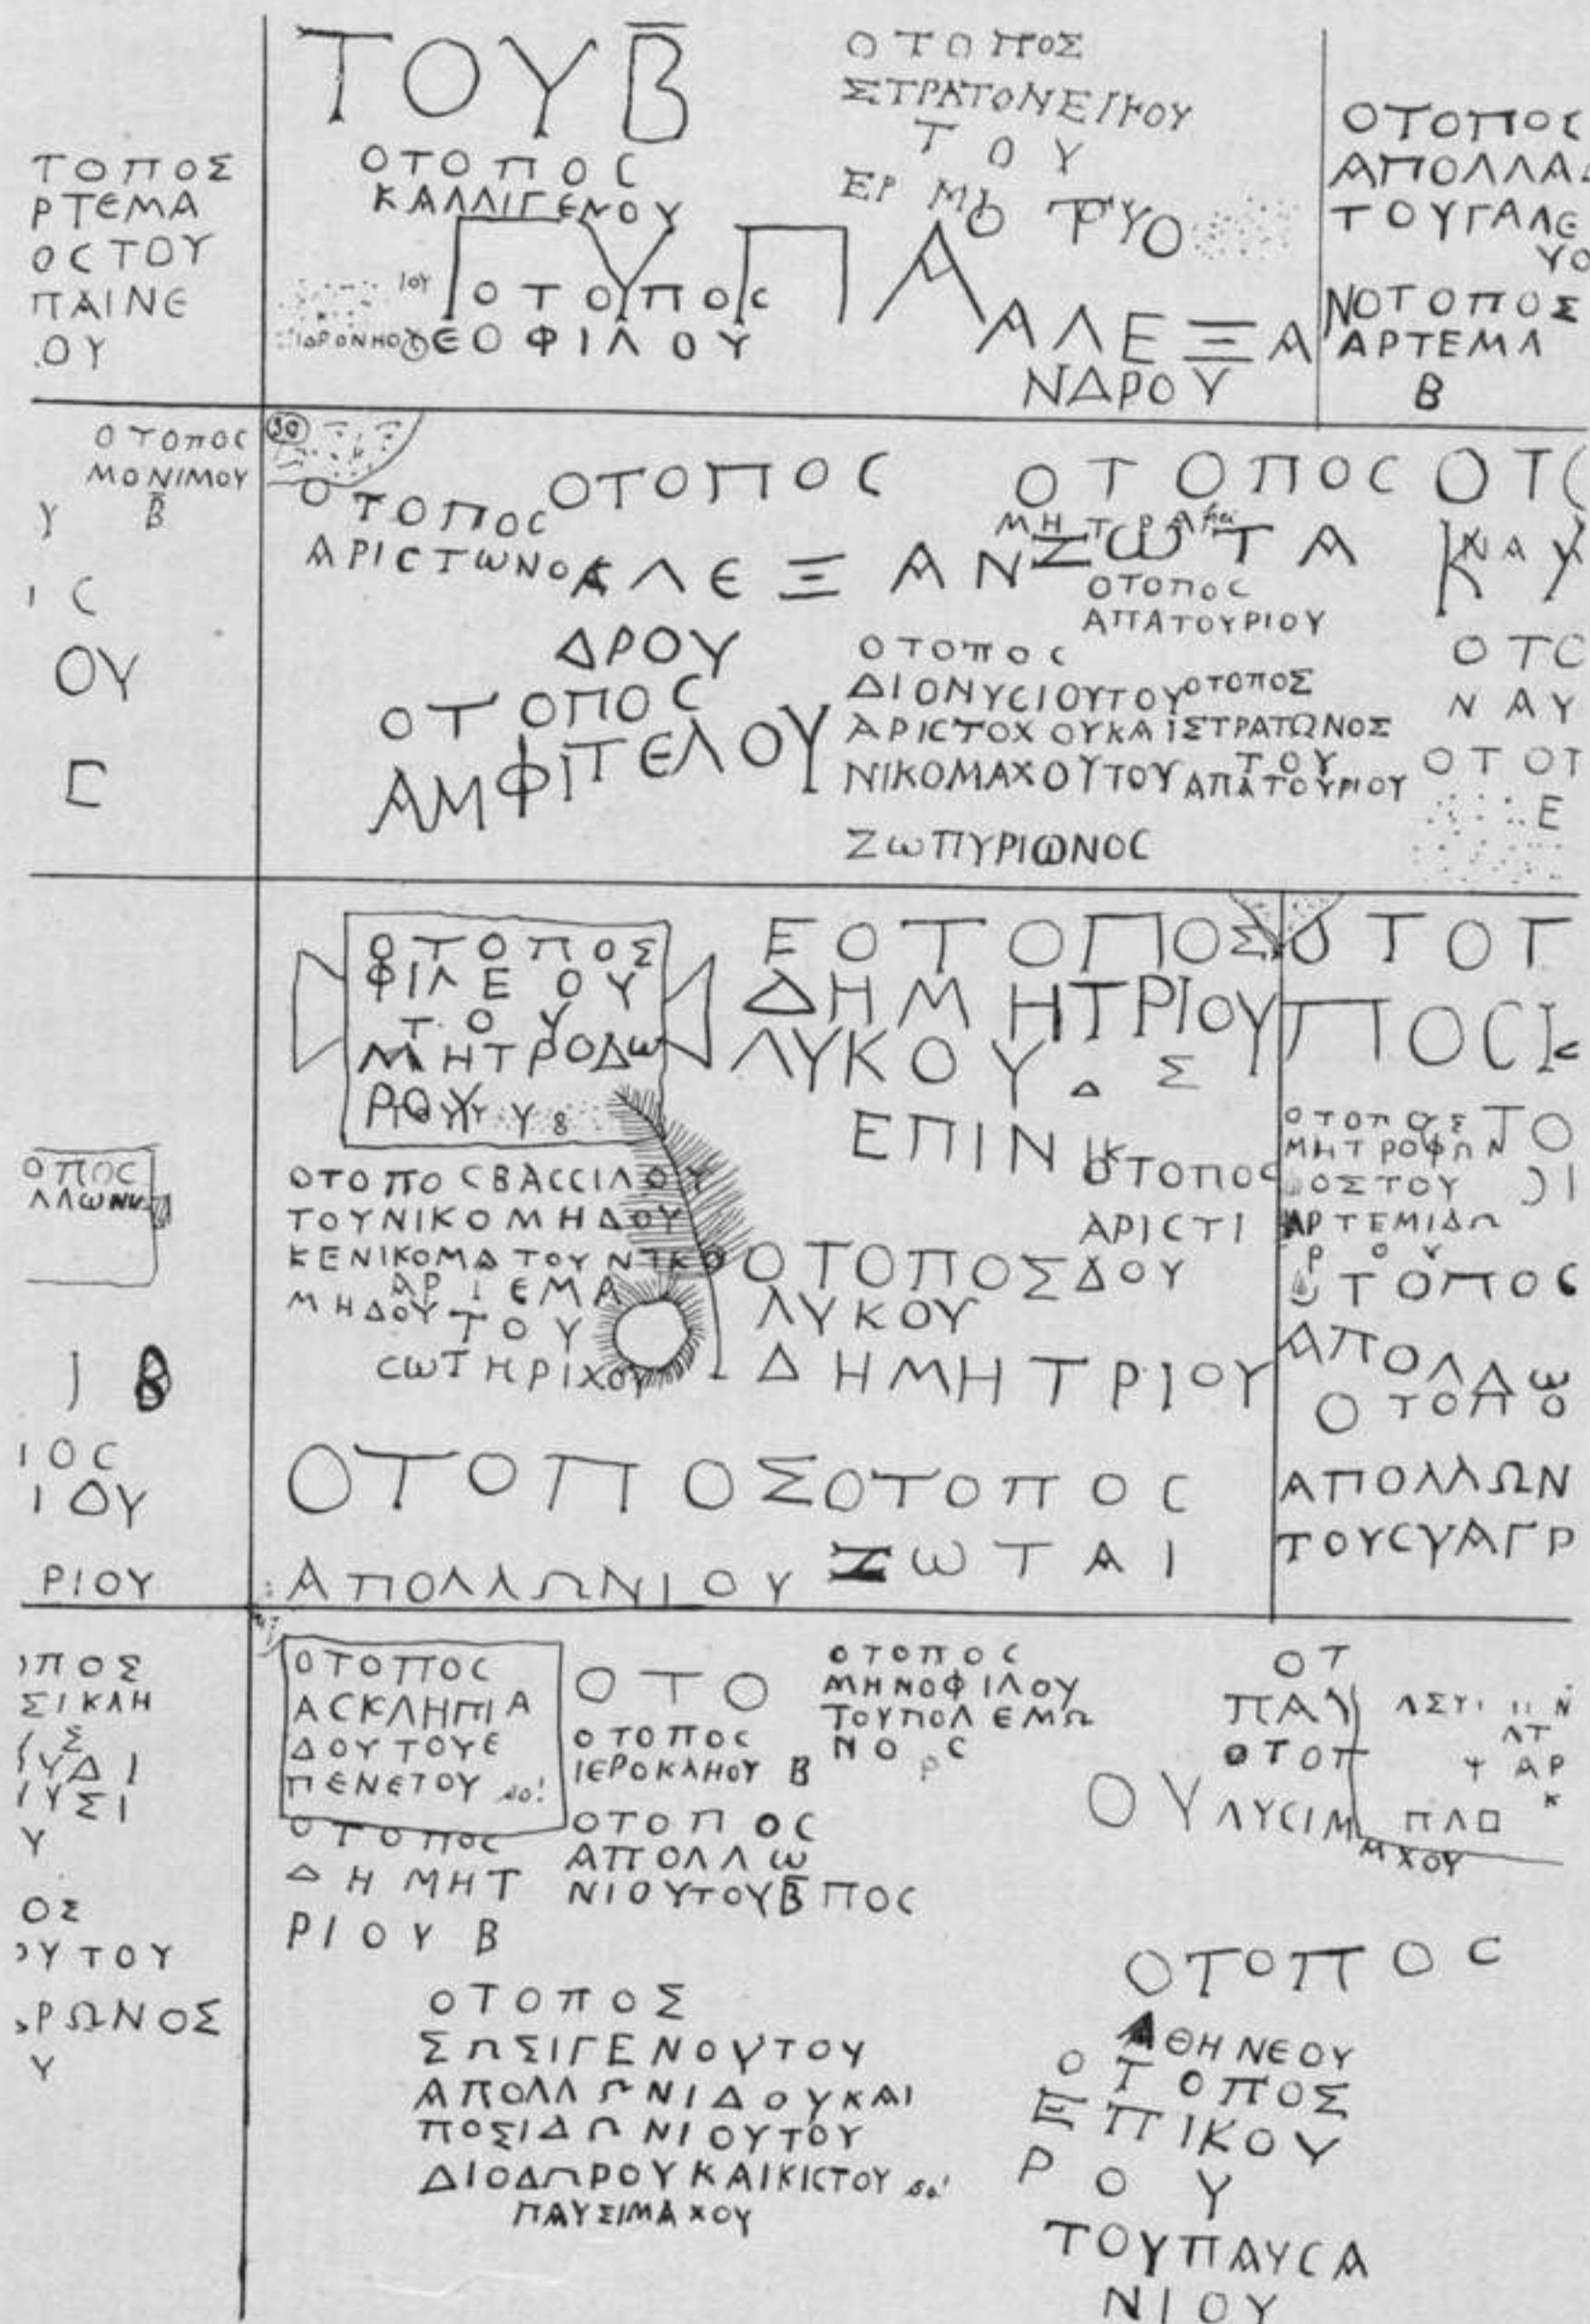 ΤΟΠΟΣ
ΡΤΕΜΑ
ΟϹΤΟΥ
ΠΑΙΝΕ
ΟΥ
ΤΟΥΒ̅
ΟΤΟΠΟϹ
ΚΑΛΛΙΓΕΝΟΥ
ΙΟΥ
ΓΥΠΑ
ΟΤΟΠΟϹ
ΘΕΟΦΙΛΟΥ
ΟΤΟΠΟΣ
ΣΤΡΑΤΟΝΕΙΚΟΥ
ΤΟΥ
ΑΛΕΞΑ
ΝΔΡΟΥ
ΟΤΟΠΟϹ
ΑΠΟΛΛΑΔ
ΤΟΥΓΑΛΕ
ΥΟ
ΝΟΤΟΠΟΣ
ΑΡΤΕΜΑ
Β
ΟΤΟΠΟϹ
ΜΟΝΙΜΟΥ
Υ Β̅
Ι Ϲ
ΟΥ
30
ΟΤΟΠΟϹ
ΑΡΙϹΤΩΝΟϹ
ΟΤΟΠΟϹ
ΑΛΕΞΑΝ
ΔΡΟΥ
ΟΤΟΠΟϹ
ΑΜΦΙΤΕΛΟΥ
ΟΤΟΠΟϹ
ΜΗΤΡΑ
ΖΩΤΑ
ΟΤΟΠΟϹ
ΑΠΑΤΟΥΡΙΟΥ
ΟΤΟΠΟϹ
ΔΙΟΝΥϹΙΟΥΤΟΥ
ΑΡΙϹΤΟΧΟΥΚΑΙ
ΝΙΚΟΜΑΧΟΥΤΟΥ
ΖΩΠΥΡΙΩΝΟϹ
ΟΤΟΠΟΣ
ΣΤΡΑΤΩΝΟΣ
ΤΟΥ
ΑΠΑΤΟΥΡΙΟΥ
ΟΤΟ
ΝΑΥ
ΟΤΟ
ΝΑΥ
ΟΤΟΠ
Ε
ΟΠΟϹ
ΛΛΩΝΙ
Β
ΙΟϹ
ΙΟΥ
ΡΙΟΥ
ΟΤΟΠΟΣ
ΦΙΛΕΟΥ
ΤΟΥ
ΜΗΤΡΟΔΩ
ΡΟΥ
ΟΤΟΠΟϹΒΑϹϹΙΛΟΥ
ΤΟΥΝΙΚΟΜΗΔΟΥ
ΚΕΝΙΚΟΜΑΤΟΥΝΙΚΟ
ΜΗΔΟΥ
ΑΡΤΕΜΑ
ΤΟΥ
ϹΩΤΗΡΙΧΟΥ
ΕΟΤΟΠΟΣ
ΔΗΜΗΤΡΙΟΥ
ΛΥΚΟΥ Δ Σ
ΕΠΙΝΙΚ
ΟΤΟΠΟϹ
ΑΡΙϹΤΙ
ΔΟΥ
ΟΤΟΠΟΣ
ΛΥΚΟΥ
ΔΗΜΗΤΡΙΟΥ
ΟΤΟΠΟΣ
ΑΠΟΛΛΩΝΙΟΥ
ΟΤΟΠΟϹ
ΖΩΤΑΙ
ΟΤΟΓ
ΠΟϹΚ
ΟΤΟΠΟΣ
ΜΗΤΡΟΦΩΝ
ΟΣΤΟΥ
ΑΡΤΕΜΙΔΩ
ΡΟΥ
ΟΤΟΠΟϹ
ΑΠΟΛΛΩ
ΟΤΟΠΟ
ΑΠΟΛΛΩΝ
ΤΟΥϹΥΑΓΡ
ΠΟΣ
ΣΙΚΛΗ
ΥΔΙ
ΙΥΣΙ
Υ
ΟΣ
ΟΥΤΟΥ
ΡΩΝΟΣ
Υ
ΟΤΟΠΟϹ
ΑϹΚΛΗΠΙΑ
ΔΟΥΤΟΥΕ
ΠΕΝΕΤΟΥ so!
ΟΤΟΠΟϹ
ΔΗΜΗΤ
ΡΙΟΥ Β
ΟΤΟ
ΟΤΟΠΟϹ
ΙΕΡΟΚΛΗΟΥ Β
ΟΤΟΠΟϹ
ΑΠΟΛΛΩ
ΝΙΟΥΤΟΥΒ̅ ΠΟϹ
ΟΤΟΠΟϹ
ΜΗΝΟΦΙΛΟΥ
ΤΟΥΠΟΛΕΜΩ
ΝΟϹ
ΟΤ
ΠΑΥ
ΟΤΟΠ
ΟΥ ΛΥϹΙΜ
ΜΧΟΥ
ΠΛΟ
ΟΤΟΠΟΣ
ΣΩΣΙΓΕΝΟΥΤΟΥ
ΑΠΟΛΛΩΝΙΔΟΥΚΑΙ
ΠΟΣΙΔΩΝΙΟΥΤΟΥ
ΔΙΟΔΩΡΟΥΚΑΙΚΙϹΤΟΥ so!
ΠΑΥΣΙΜΑΧΟΥ
ΟΤΟΠΟϹ
ΑΘΗΝΕΟΥ
ΟΤΟΠΟΣ
ΕΠΙΚΟΥ
ΡΟΥ
ΤΟΥΠΑΥϹΑ
ΝΙΟΥ